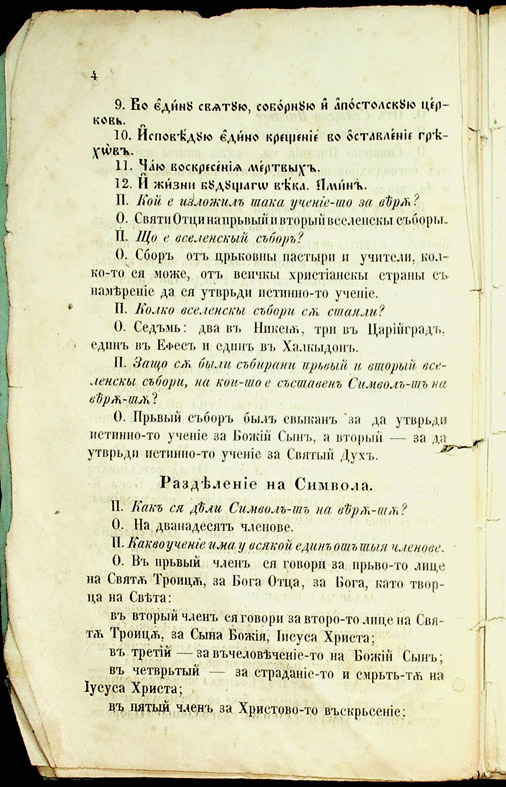 4
9. Во є҆ди́нꙋ свѧтꙋ́ю, собо́рнꙋю и҆ а҆по́столскꙋю це́р-
ковь.
10. И҆сповѣ́дꙋю є҆ди́но креще́нїе во ѡ҆ставле́нїе грѣ-
хѡ́въ.
11. Ча́ю воскресе́нїѧ ме́ртвыхъ.
12. И҆ жи́зни бꙋ́дꙋщагѡ вѣ́ка. А҆ми́нь.
П. Кой е изложилъ така ученіе-то за вѣрѫ?
О. Святи Отци на првый и вторый вселенскы съборы.
П. Що е вселенскый съборъ?
О. Сборъ отъ црьковны пастыри и учители, кол-
ко-то ся може, отъ всичкы християнскы страны съ
намѣреніе да ся утврьди истинно-то ученіе.
П. Колко вселенскы събори сѫ стаяли?
О. Седъмь: два въ Никеѭ, три въ Царійградъ,
единъ въ Ефесъ и единъ въ Халкыдонъ.
П. Защо сѫ были събирани прьвый и вторый все-
ленскы събори, на кои-то е съставенъ Символъ-тъ на
вѣрѫ-тѫ?
О. Прьвый съборъ былъ свыканъ за да утврьди
истинно-то ученіе за Божій Сынъ, а вторый — за да
утврьди истинно-то ученіе за Святый Духъ.
Раздѣленіе на Символа.
П. Какъ ся дѣли Символъ-тъ на вѣрѫ-тѫ?
О. На дванадесять членове.
П. Какво ученіе има у всякой единъ отъ тыя членове.
О. Въ прьвый членъ ся говори за прьво-то лице
на Святѫ Троицѫ, за Бога Отца, за Бога, като твор-
ца на Свѣта:
въ вторый членъ ся говори за второ-то лице на Свя-
тѫ Троицѫ, за Сына Божія, Іисуса Христа;
въ третій — за въчеловѣченіе-то на Божій Сынъ;
въ четврьтый — за страданіе-то и смрьть-тѫ на
Іусуса Христа;
въ пятый членъ за Христово-то въскрьсеніе;